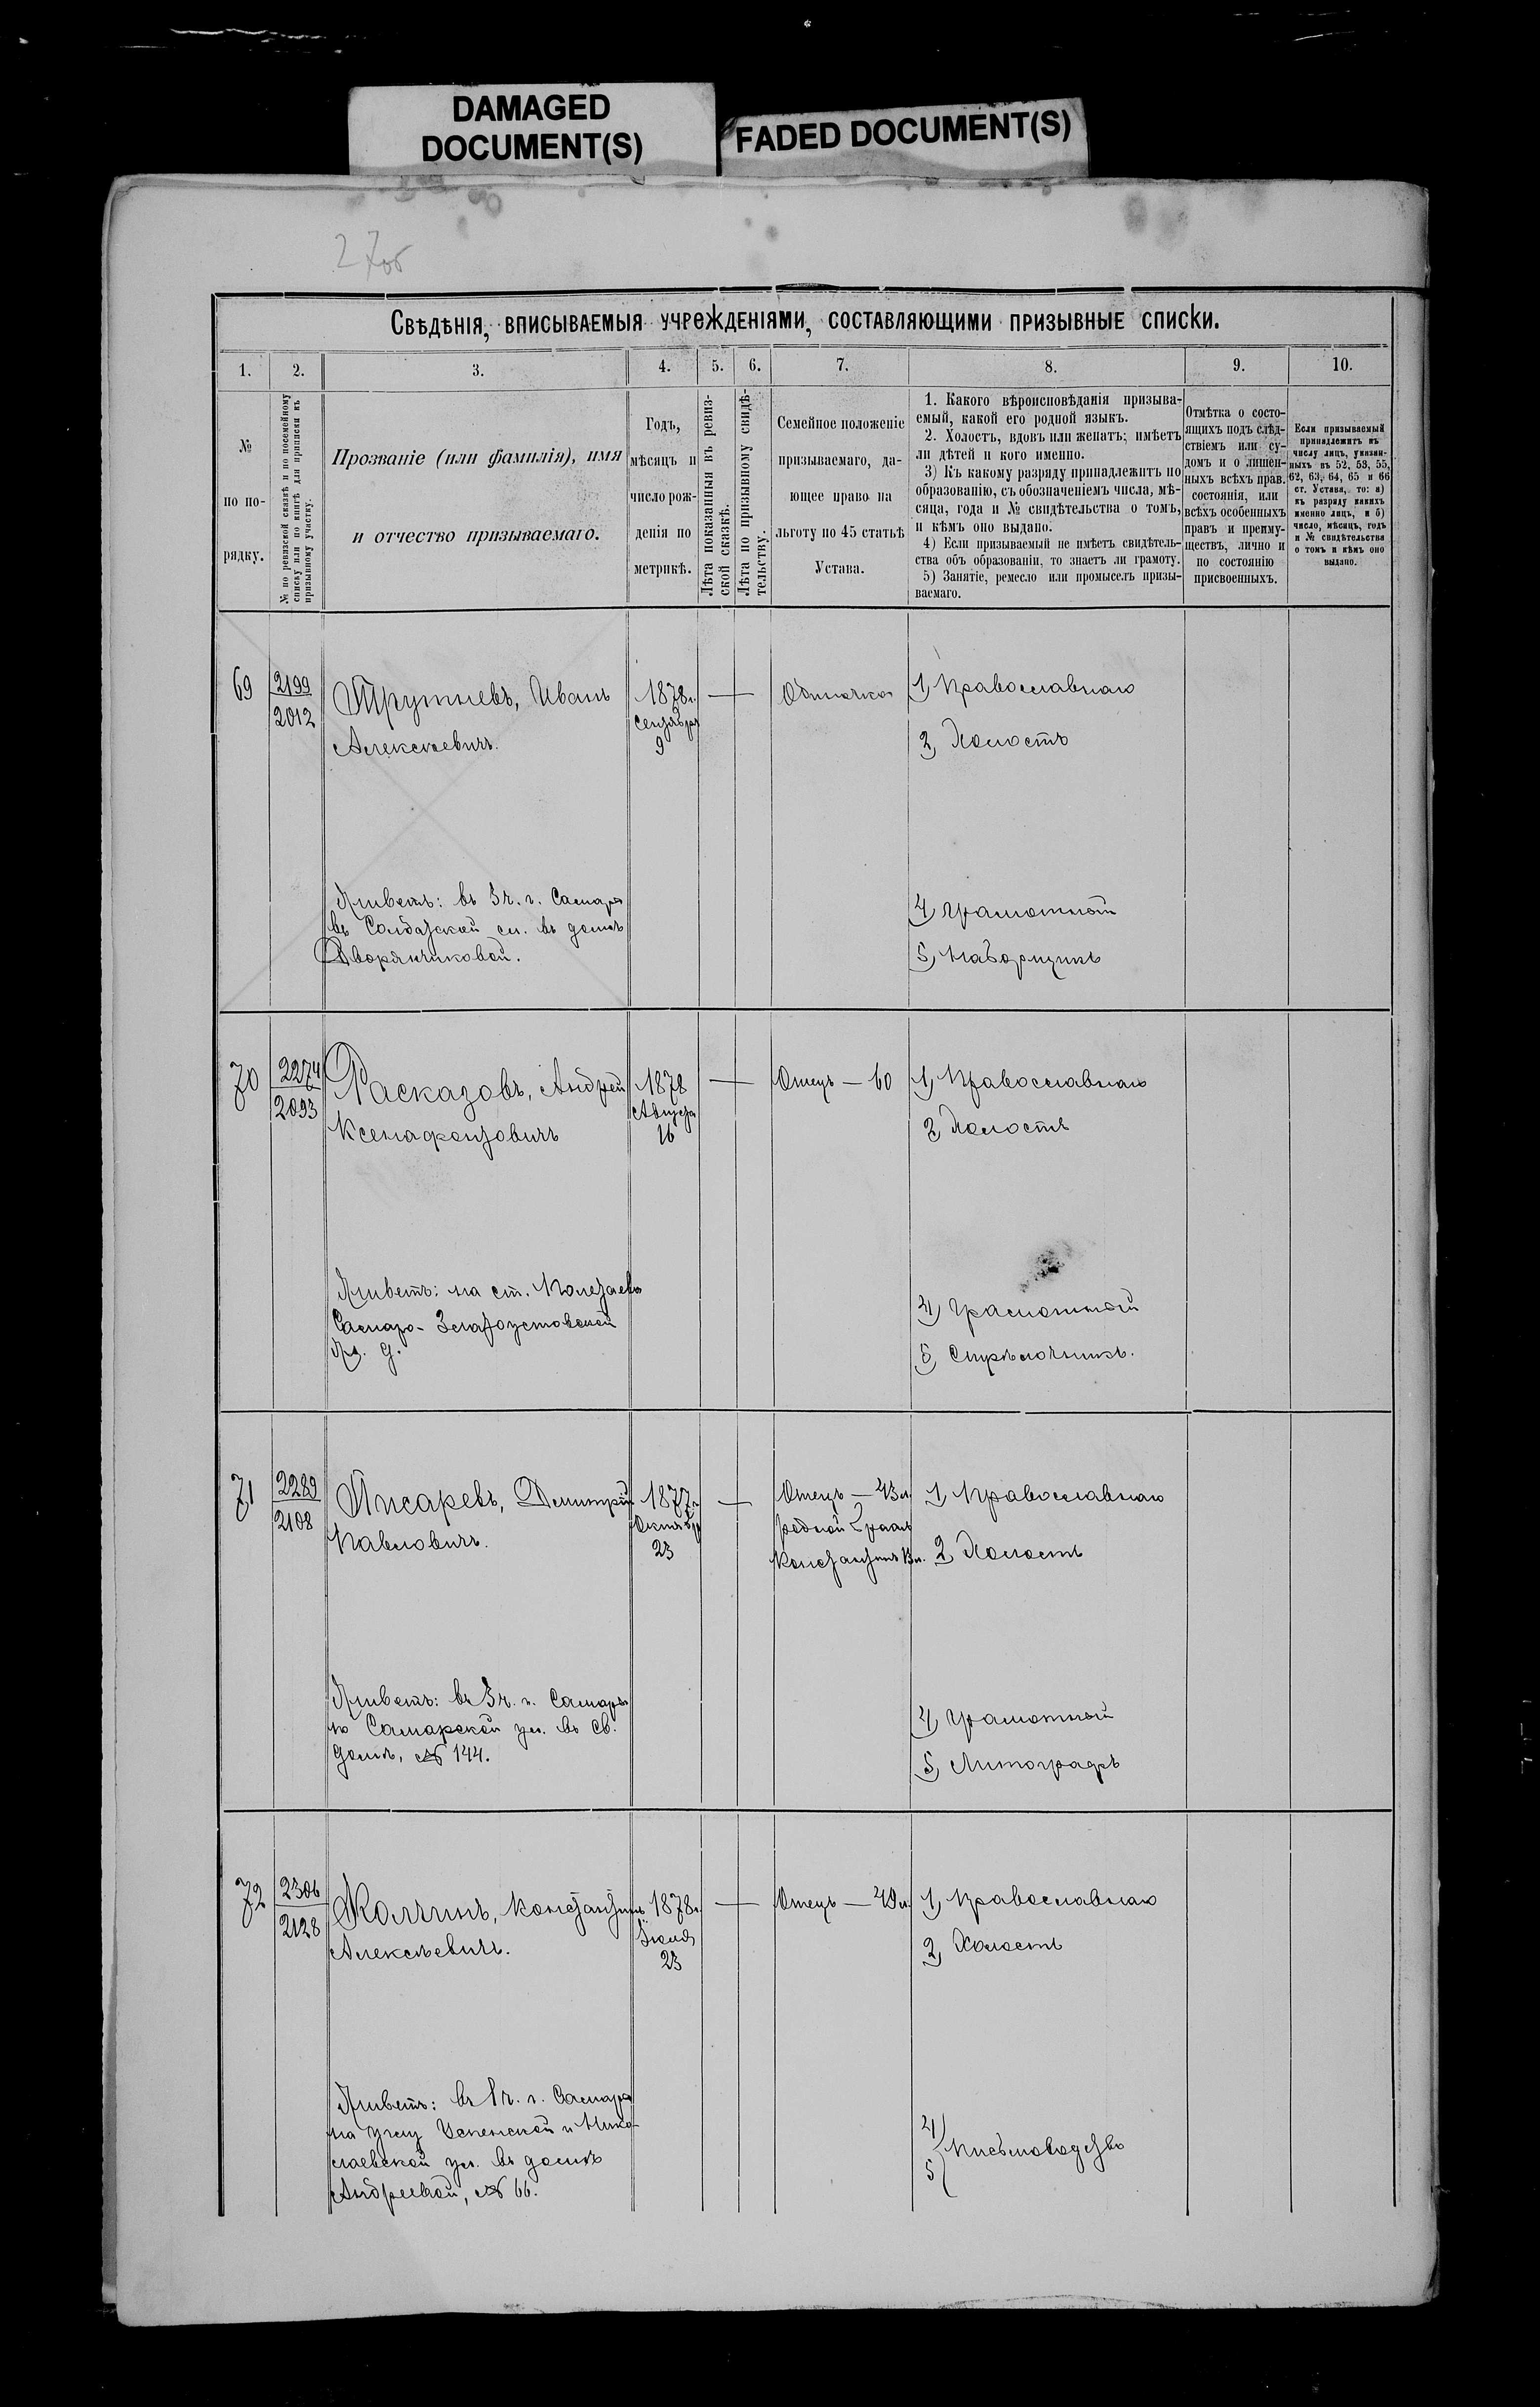 DAMAGED
DOCUMENT(S)
FADED DOCUMENT(S)
27об
Свѣдѣнія, вписываемыя учрежденіями, составляющими призывные списки.
1. 2. 3. 4. 5. 6. 7. 8. 9. 10.
№
по по-
рядку.
№ по ревизской сказкѣ и по посемейному
списку или по книгѣ для приписки къ
призывному участку.
Прозваніе (или фамилія), имя
и отчество призываемаго.
Годъ,
мѣсяцъ и
число рож-
денія по
метрикѣ.
Лѣта показанныя въ ревиз-
ской сказкѣ.
Лѣта по призывному свидѣ-
тельству.
Семейное положеніе
призываемаго, да-
ющее право на
льготу по 45 статьѣ
Устава.
1. Какого вѣроисповѣданія призыва-
емый, какой его родной языкъ.
2. Холостъ, вдовъ или женатъ; имѣетъ
ли дѣтей и кого именно.
3) Къ какому разряду принадлежитъ по
образованію, съ обозначеніемъ числа, мѣ-
сяца, года и № свидѣтельства о томъ,
и кѣмъ оно выдано.
4) Если призываемый не имѣетъ свидѣтель-
ства объ образованіи, то знаетъ ли грамоту.
5) Занятіе, ремесло или промыселъ призы-
ваемаго.
Отмѣтка о состо-
ящихъ подъ слѣд-
ствіемъ или су-
домъ и о лишен-
ныхъ всѣхъ прав.
состоянія, или
всѣхъ особенныхъ
правъ и преиму-
ществъ, лично и
по состоянію
присвоенныхъ.
Если призываемый
принадлежитъ къ
числу лицъ, указан-
ныхъ въ 52, 53, 55,
62, 63, 64, 65 и 66
ст. Устава, то: а)
къ разряду какихъ
именно лицъ, и б)
число, мѣсяцъ, годъ
и № свидѣтельства
о томъ и кѣмъ оно
выдано.
69
2199
2012
Трутневъ, Иванъ
Алексѣевичъ.
1878г.
Сентября
9
Одиночка
1) Православнаго
2) Холостъ
Живетъ: въ 3ч. г. Самары
въ Солдатской ул. въ домѣ
Дворянчиковой.
4) Грамотный
5) Наборщикъ
70
2274
2093
Расказовъ, Андрей
Ксенафонтовичъ
1878
Августа
16
Отецъ — 60
1) Православнаго
2) Холостъ
Живетъ: на ст.
Самаро-Златоустовской
ж. д.
4) Грамотный
5) Стрѣлочникъ.
71
2289
2108
Писаревъ, Дмитрій
Павловичъ.
1877г.
Октября
23
Отецъ — 43л.
родной братъ
Константинъ 13л.
1) Православнаго
2) Холостъ
Живетъ: въ 3ч. г. Самары
по Самарской ул. въ св.
домѣ, № 144.
4) Грамотный
5) Литографъ
72
2306
2128
Колчинъ, Константинъ
Алексѣевичъ.
1878г.
Іюля
23
Отецъ — 49л.
1) Православнаго
2) Холостъ
Живетъ: въ 1ч. г. Самары
на углу Успенской и Нико-
лаевской ул. въ домѣ
Андреевой, № 66.
4)
5) Письмоводство